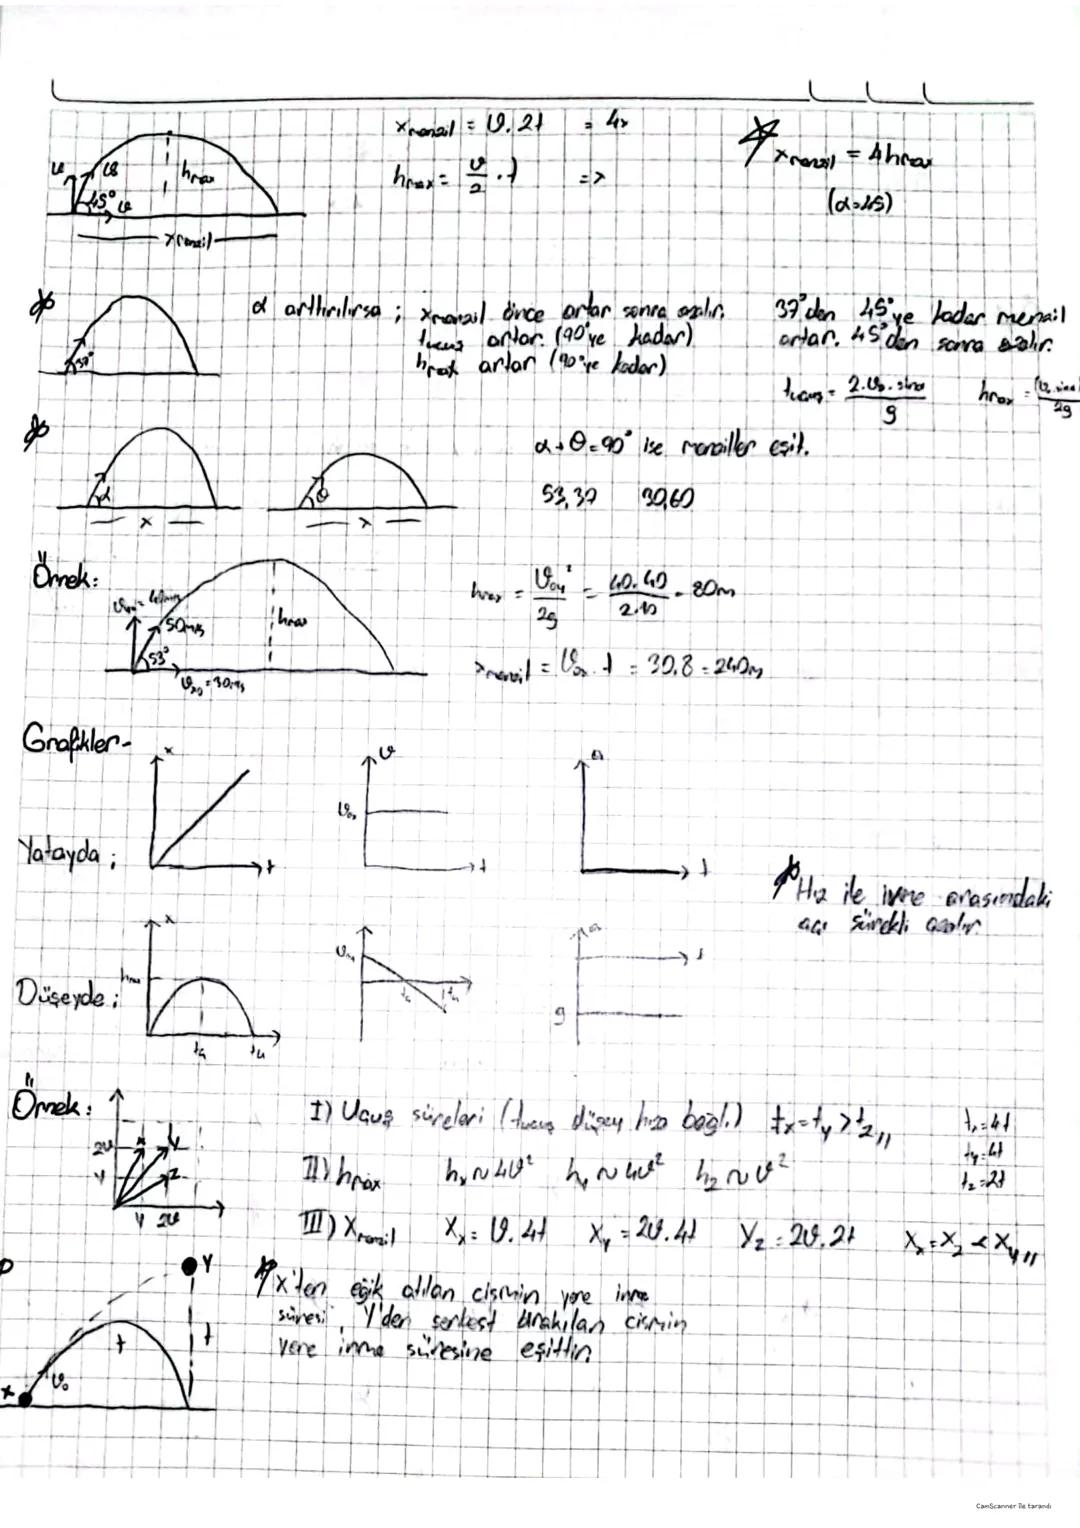 xmenzil = v.2t = 4x
hmax = v/2 . t =>
xmenzil = 4hmax
(α=45)
v
45° v
hmax
xmenzil
α arttırılırsa ; xmenzil önce artar sonra azalır.
tuçuş artar. (90°ye kadar)
hmax artar (90°ye kadar)
37°den 45°ye kadar menzil
artar. 45°den sonra azalır.
37°
tuçuş = 2.v₀.sinα / g
hmax = (v₀.sinα) / 2g
α + θ = 90° ise menziller eşit.
53,37 30,60
α θ
x x
Örnek:
50m/s
53°
v₀x = 30m/s
hmax
hmax = v₀y² / 2g = 40.40 / 2.10 = 80m
xmenzil = v₀x . t = 30.8 = 240m
Grafikler-
x v a
v₀x
Yatayda ;
t t t
Hız ile ivme arasındaki
açı sürekli azalır.
x a
hmax v₀y t
Düşeyde ;
g
Örnek:
I) Uçuş süreleri (tuçuş düşey hıza bağlı.) tx = ty > tz
tx = 4t
ty = 4t
tz = 2t
2v x y
v z
v 2v
II) hmax hx ~ 4v² hy ~ 4v² hz ~ v²
III) Xmenzil Xx = v.4t Xy = 2v.4t Yz = 2v.2t Xx = Xz < Xy
Y
X'ten eğik atılan cismin yere inme
süresi, Y'den serbest bırakılan cismin
yere inme süresine eşittir.
t t
x v₀
CamScanner ile tarandı